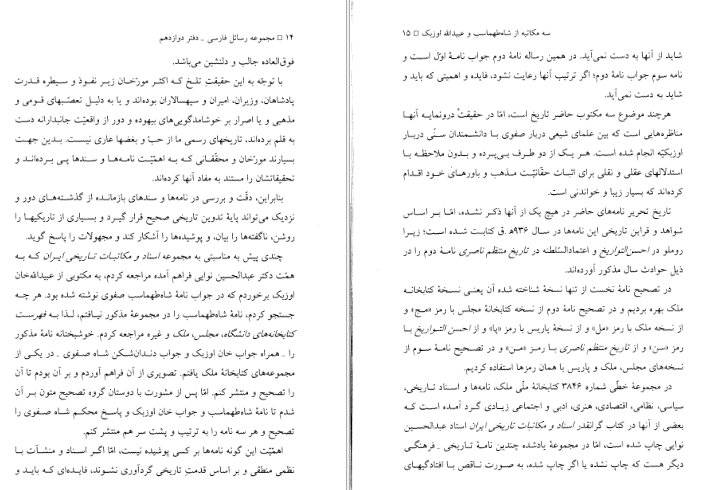 ۱۴ □ مجموعه رسائل فارسی ـ دفتر دوازدهم
فوق‌العاده جالب و دلنشین می‌باشد.
با توجّه به این حقیقتِ تلخ کـه اکثـر مورّخـان زیـر نفـوذ و سیطره قـدرت
پادشاهان، وزیران، امیران و سپهسالاران بوده‌اند و یا به دلیـل تعصّبهای قـومی و
مذهبی و یا اصرار بر خوشامدگویی‌های بیهوده و دور از واقعیّت جانبدارانه دست
به قلم برده‌اند، تاریخهای رسمی ما از حبّ و بغضها عاری نیست. بدین جهت
بسیارند مورّخان و محقّقانی کـه بـه اهمّیّـت نامه‌هـا و سندها پـی بـرده‌انـد و
تحقیقاتشان را مستند به مفاد آنها کرده‌اند.
بنابراین، دقّت و بررسی در نامه‌ها و سندهای بازمانده از گذشته‌های دور و
نزدیک می‌تواند پایهٔ تدوین تاریخی صحیح قرار گیرد و بسیاری از تاریکیها را
روشن، ناگفته‌ها را بیان، و پوشیده‌ها را آشکار کند و مجهولات را پاسخ گوید.
چندی پیش به مناسبتی به مجموعه اسناد و مکاتبـات تـاریخی ایـران کـه بـه
همّت دکتر عبدالحسین نوایی فراهم آمده مراجعه کردم، به مکتوبی از عبیدالله‌خان
اوزبک برخوردم که در جواب نامهٔ شاه‌طهماسب صفوی نوشته شده بود. هر چـه
جستجو کردم، نامهٔ شاه‌طهماسب را در مجموعهٔ مذکور نیـافتم، لـذا بـه فهرسـت
کتابخانه‌های دانشگاه، مجلس، ملک و غیره مراجعه کردم. خوشبختانه نامهٔ مذکور
را ـ همراه جواب خان اوزبک و جواب دنـدان‌شکن شـاه صـفوی ـ در یکـی از
مجموعه‌های کتابخانهٔ ملک یافتم. تصویری از آن فراهم آوردم و بر آن بودم تا آن
را تصحیح و منتشر کنم. امّا پس از مشورت با دوستان گروه تصحیح متون بـر آن
شدم تا نامهٔ شاه‌طهماسب و جواب خان اوزبک و پاسخ محکـم شـاه صـفوی را
تصحیح و هر سه نامه را به ترتیب و پشت سر هم منتشر کنم.
اهمّیّت این گونه نامه‌ها بر کسی پوشیده نیست، امّا اگـر اسـناد و منشـآت بـا
نظمی منطقی و بر اساس قدمتِ تاریخی گردآوری نشـوند، فایـده‌ای کـه بایـد و
سه مکاتبه از شاه‌طهماسب و عبیدالله اوزبک □ ۱۵
شاید از آنها به دست نمی‌آید. در همین رساله نامهٔ دوم جواب نامهٔ اوّل است و
نامه سوم جواب نامهٔ دوم؛ اگر ترتیب آنها رعایت نشود، فایده و اهمیتی که باید و
شاید به دست نمی‌آید.
هرچند موضوع سه مکتوب حاضر تاریخ است، امّا در حقیقت درونمایـه آنهـا
مناظره‌هایی است که بین علمای شیعی دربار صفوی با دانشـمندان سـنّی دربـار
اوزبکیّه انجام شده است. هـر یـک از دو طرف بـی‌پـرده و بـدون ملاحظـه بـا
استدلالهای عقلی و نقلی برای اثبـات حقّانیّـت مـذهب و باورهـای خـود اقـدام
کرده‌اند که بسیار زیبا و خواندنی است.
تاریخ تحریر نامه‌های حاضر در هیچ یک از آنها ذکـر نشـده، امّـا بـر اساس
شواهد و قراین تاریخی این نامه‌ها در سـال ۹۳۶هـ .ق کتابـت شـده اسـت؛ زیـرا
روملو در احسن‌التواریخ و اعتمادالسّلطنه در تاریخ منتظم ناصری نامهٔ دوم را در
ذیل حوادث سال مذکور آورده‌اند.
در تصحیح نامهٔ نخست از تنها نسخهٔ شناخته شده آن یعنـی نسـخهٔ کتابخانـه
ملک بهره بردیم و در تصحیح نامهٔ دوم از نسخه کتابخانهٔ مجلس با رمز «مـج» و
از نسخه ملک با رمز «مل» و از نسخهٔ پاریس با رمز «پا» و از احسن التـواریخ بـا
رمز «سن» و از تاریخ منتظم ناصری بـا رمـز «مـن» و در تصـحیح نامـهٔ سـوم از
نسخه‌های مجلس، ملک و پاریس با همان رمزها استفاده کردیم.
در مجموعهٔ خطّی شماره ۳۸۴۶ کتابخانهٔ ملّی ملک، نامه‌ها و اسناد تـاریخی،
سیاسی، نظامی، اقتصادی، هنری، ادبی و اجتماعی زیـادی گـرد آمـده اسـت کـه
بعضی از آنها در کتاب گرانقدر اسناد و مکاتبات تاریخی ایران استاد عبدالحسـین
نوایی چاپ شده است، امّا در مجموعهٔ یادشده چندین نامـهٔ تـاریخی ـ فرهنگـی
دیگر هست که چاپ نشده یا اگر چاپ شده، به صـورت نـاقص بـا افتادگیهـای